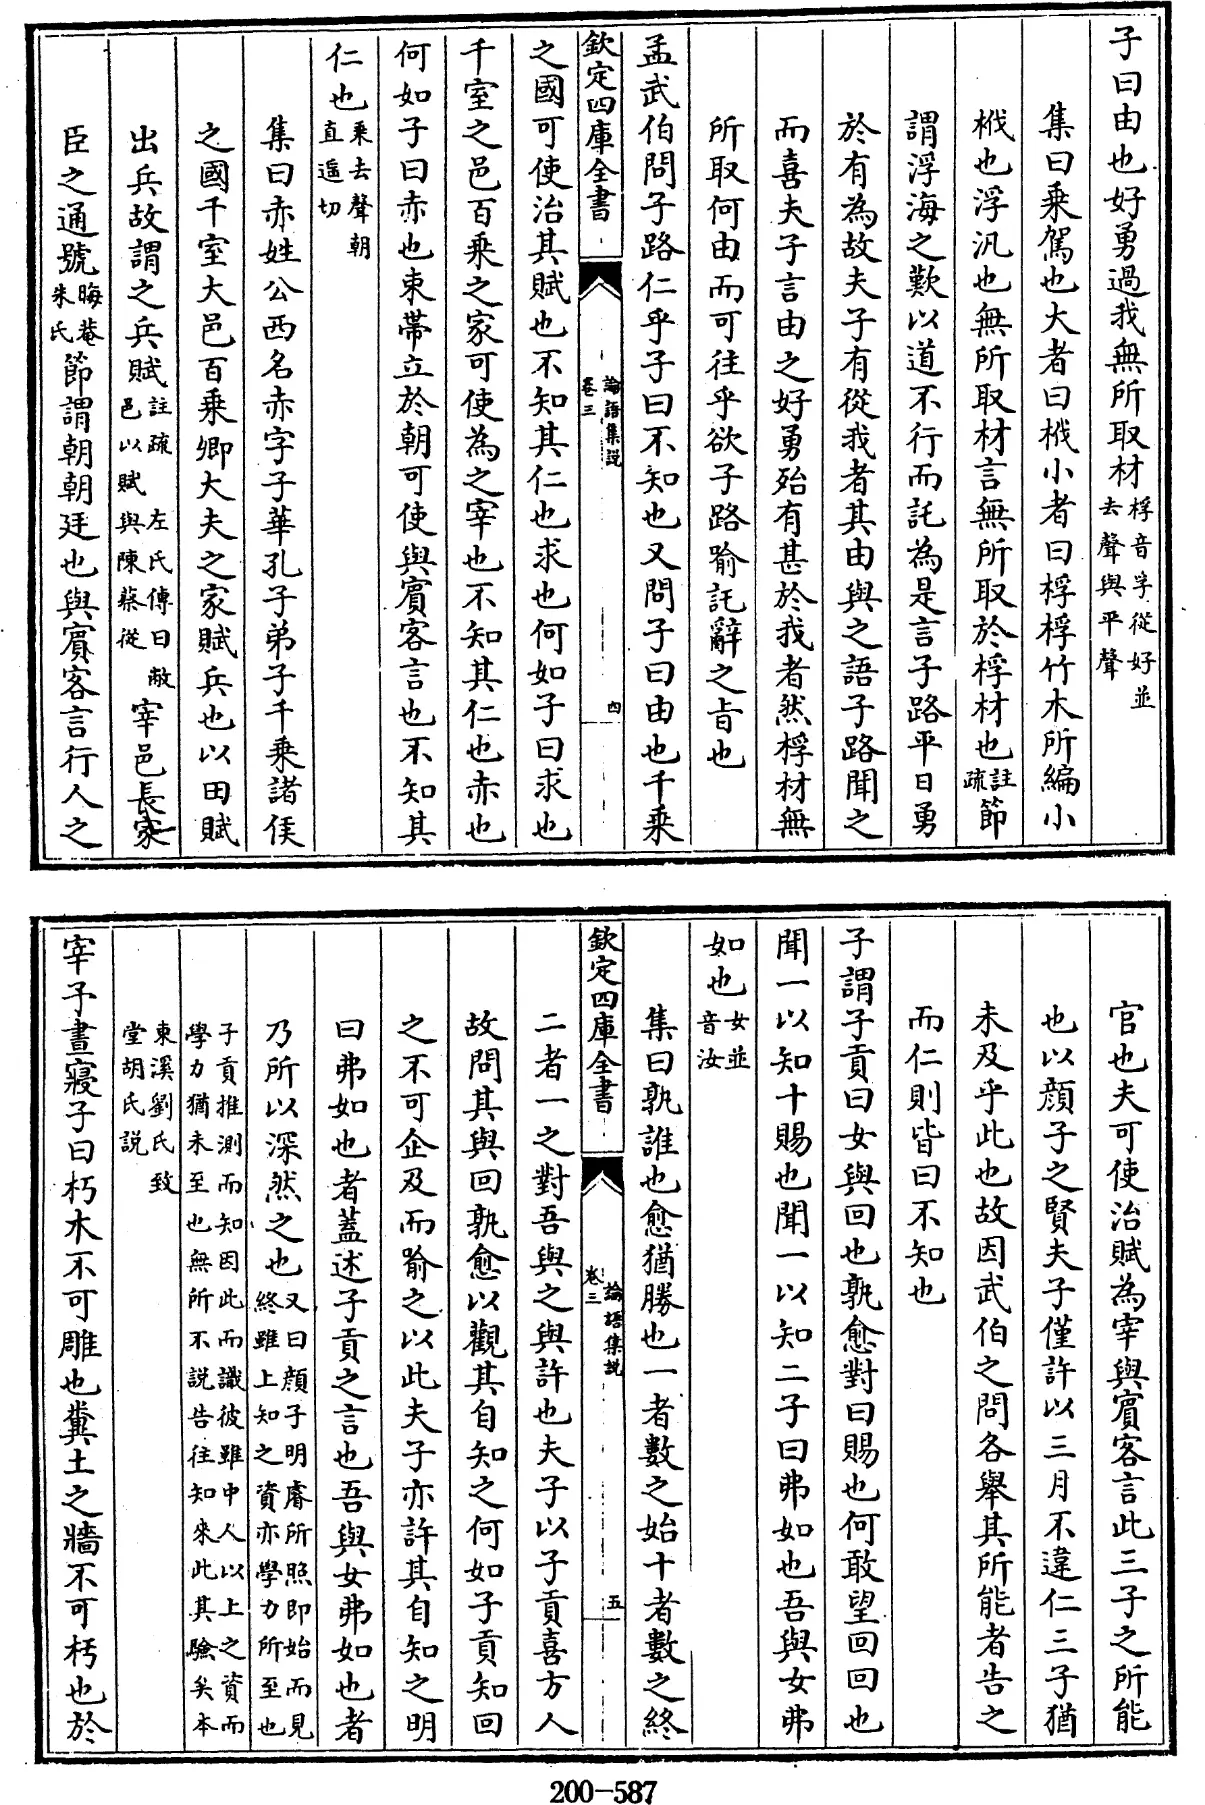 子曰由也好勇過我無所取材桴音孚從好並去聲與平聲
集曰乘駕也大者曰栰小者曰桴桴竹木所編小
栰也浮汎也無所取材言無所取於桴材也註疏節
謂浮海之歎以道不行而託為是言子路平日勇
於有為故夫子有從我者其由與之語子路聞之
而喜夫子言由之好勇殆有甚於我者然桴材無
所取何由而可往乎欲子路喻託辭之旨也
孟武伯問子路仁乎子曰不知也又問子曰由也千乘
欽定四庫全書
論語集説
卷三
四
之國可使治其賦也不知其仁也求也何如子曰求也
千室之邑百乘之家可使為之宰也不知其仁也赤也
何如子曰赤也束帶立於朝可使與賓客言也不知其
仁也乘去聲朝直遥切
集曰赤姓公西名赤字子華孔子弟子千乘諸侯
之國千室大邑百乘卿大夫之家賦兵也以田賦
出兵故謂之兵賦註疏左氏傳曰敝邑以賦與陳蔡從宰邑長家
臣之通號晦菴朱氏節謂朝朝廷也與賓客言行人之
官也夫可使治賦為宰與賓客言此三子之所能
也以顔子之賢夫子僅許以三月不違仁三子猶
未及乎此也故因武伯之問各舉其所能者告之
而仁則皆曰不知也
子謂子貢曰女與回也孰愈對曰賜也何敢望回回也
聞一以知十賜也聞一以知二子曰弗如也吾與女弗
如也女並音汝
集曰孰誰也愈猶勝也一者數之始十者數之終
欽定四庫全書
論語集説
卷三
五
二者一之對吾與之與許也夫子以子貢喜方人
故問其與回孰愈以觀其自知之何如子貢知回
之不可企及而喻之以此夫子亦許其自知之明
曰弗如也者蓋述子貢之言也吾與女弗如也者
乃所以深然之也又曰顔子明睿所照即始而見終雖上知之資亦學力所至也
子貢推測而知因此而識彼雖中人以上之資而學力猶未至也無所不説告往知來此其驗矣本
東溪劉氏致堂胡氏説
宰予晝寢子曰朽木不可雕也糞土之牆不可杇也於
200-587